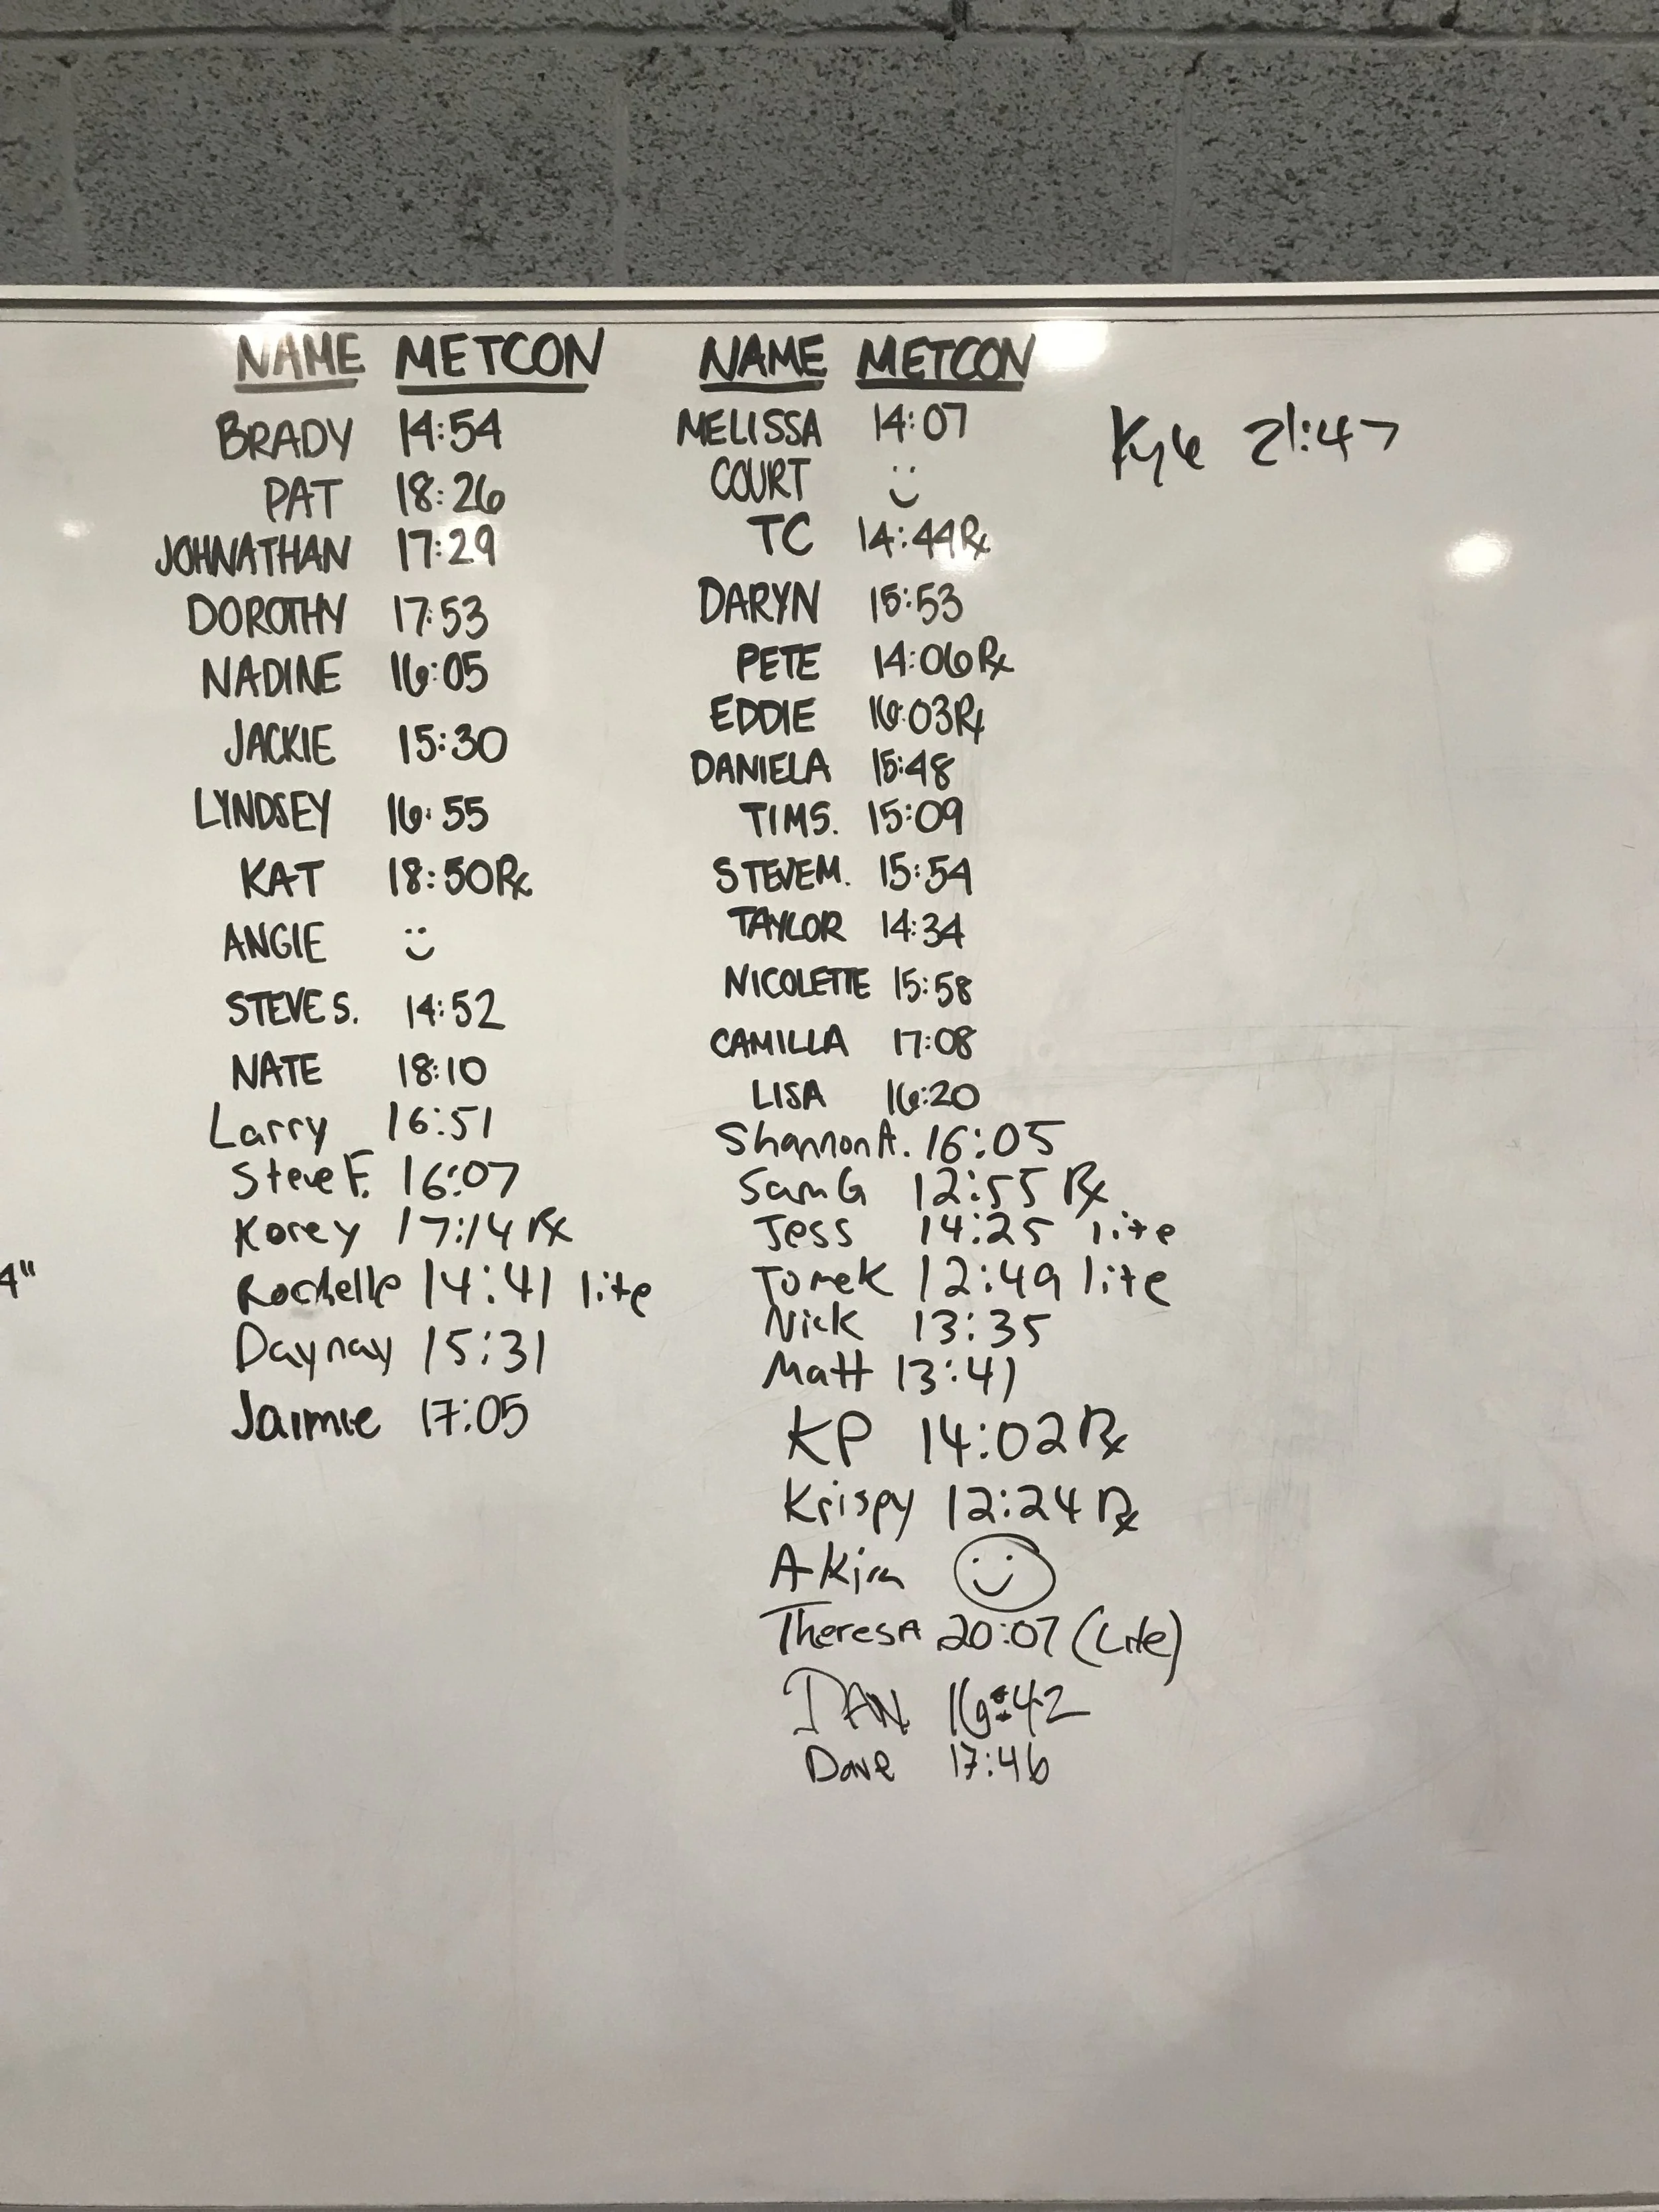 NAME METCON
BRADY 14:54
PAT 18:26
JOHNATHAN 17:29
DOROTHY 17:53
NADINE 16:05
JACKIE 15:30
LYNDSEY 16:55
KAT 18:50 Rx
ANGIE
STEVE S. 14:52
NATE 18:10
Larry 16:51
Steve F. 16:07
Korey 17:14 Rx
4"
Rochelle 14:41 lite
Daynay 15:31
Jaimie 17:05
NAME METCON
MELISSA 14:07
COURT
TC 14:44 Rx
DARYN 15:53
PETE 14:06 Rx
EDDIE 16:03 Rx
DANIELA 15:48
TIM S. 15:09
STEVE M. 15:54
TAYLOR 14:34
NICOLETTE 15:58
CAMILLA 17:08
LISA 16:20
Shannon A. 16:05
Sam G 12:55 Rx
Jess 14:25 lite
Tomek 12:49 lite
Nick 13:35
Matt 13:41
KP 14:02 Rx
Krispy 12:24 Rx
Akira
TheresA 20:07 (Lite)
DAN 16:42
Dave 17:46
Kyle 21:47